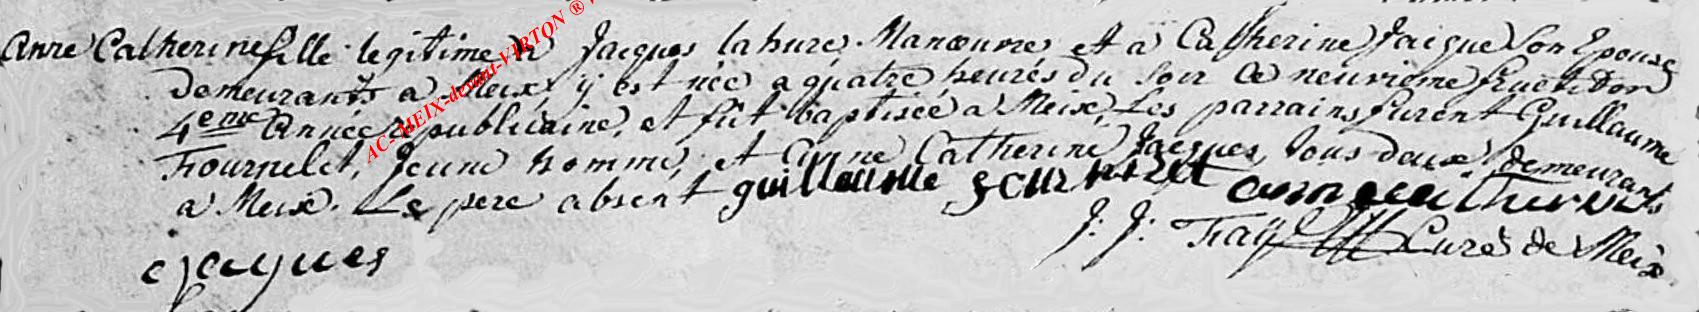 Anne Catherine fille legitime a Jacques lahure Manœuvre et a Catherine Jaique son Epouse
Demeurants a Meix, y est née a quatre heures du soir ce neuvieme fructidor
4eme année republicaine, et fût baptisée a Meix, Les parrains furent Guillaume
Fournelet, Jeune homme, et Anne Catherine Jacques, tous deux demeurants
a Meix. Le pere absent guillaume anne catherine
J: J: Curé de Meix
jacques
AC-MEIX-devant-VIRTON ®